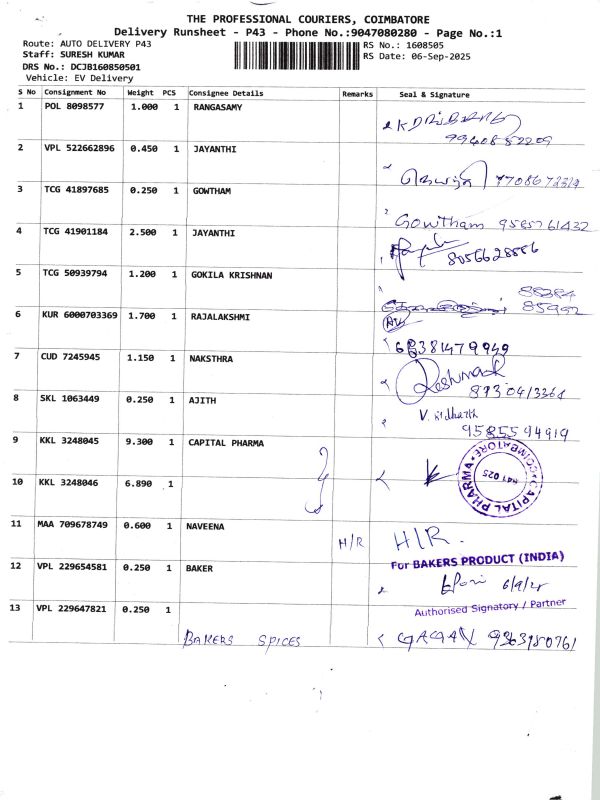 THE PROFESSIONAL COURIERS, COIMBATORE
Delivery Runsheet - P43 - Phone No.:9047080280 - Page No.:1
Route: AUTO DELIVERY P43
Staff: SURESH KUMAR
DRS No.: DCJB160850501
Vehicle: EV Delivery
RS No.: 1608505
RS Date: 06-Sep-2025
S No Consignment No Weight PCS Consignee Details Remarks Seal & Signature
1 POL 8098577 1.000 1 RANGASAMY
9940852209
2 VPL 522662896 0.450 1 JAYANTHI
7708672319
3 TCG 41897685 0.250 1 GOWTHAM
Gowtham 9585761432
4 TCG 41901184 2.500 1 JAYANTHI
8056628556
5 TCG 50939794 1.200 1 GOKILA KRISHNAN
88384
85992
6 KUR 6000703369 1.700 1 RAJALAKSHMI
6381479949
7 CUD 7245945 1.150 1 NAKSTHRA
8 SKL 1063449 0.250 1 AJITH
V. sidharth
9585594919
9 KKL 3248045 9.300 1 CAPITAL PHARMA
CAPITAL PHARMA COIMBATORE
641 025
10 KKL 3248046 6.890 1
11 MAA 709678749 0.600 1 NAVEENA H/R H/R.
12 VPL 229654581 0.250 1 BAKER
For BAKERS PRODUCT (INDIA)
6/9/25
Authorised Signatory / Partner
13 VPL 229647821 0.250 1
BAKERS SPICES GAGAN 9363980761